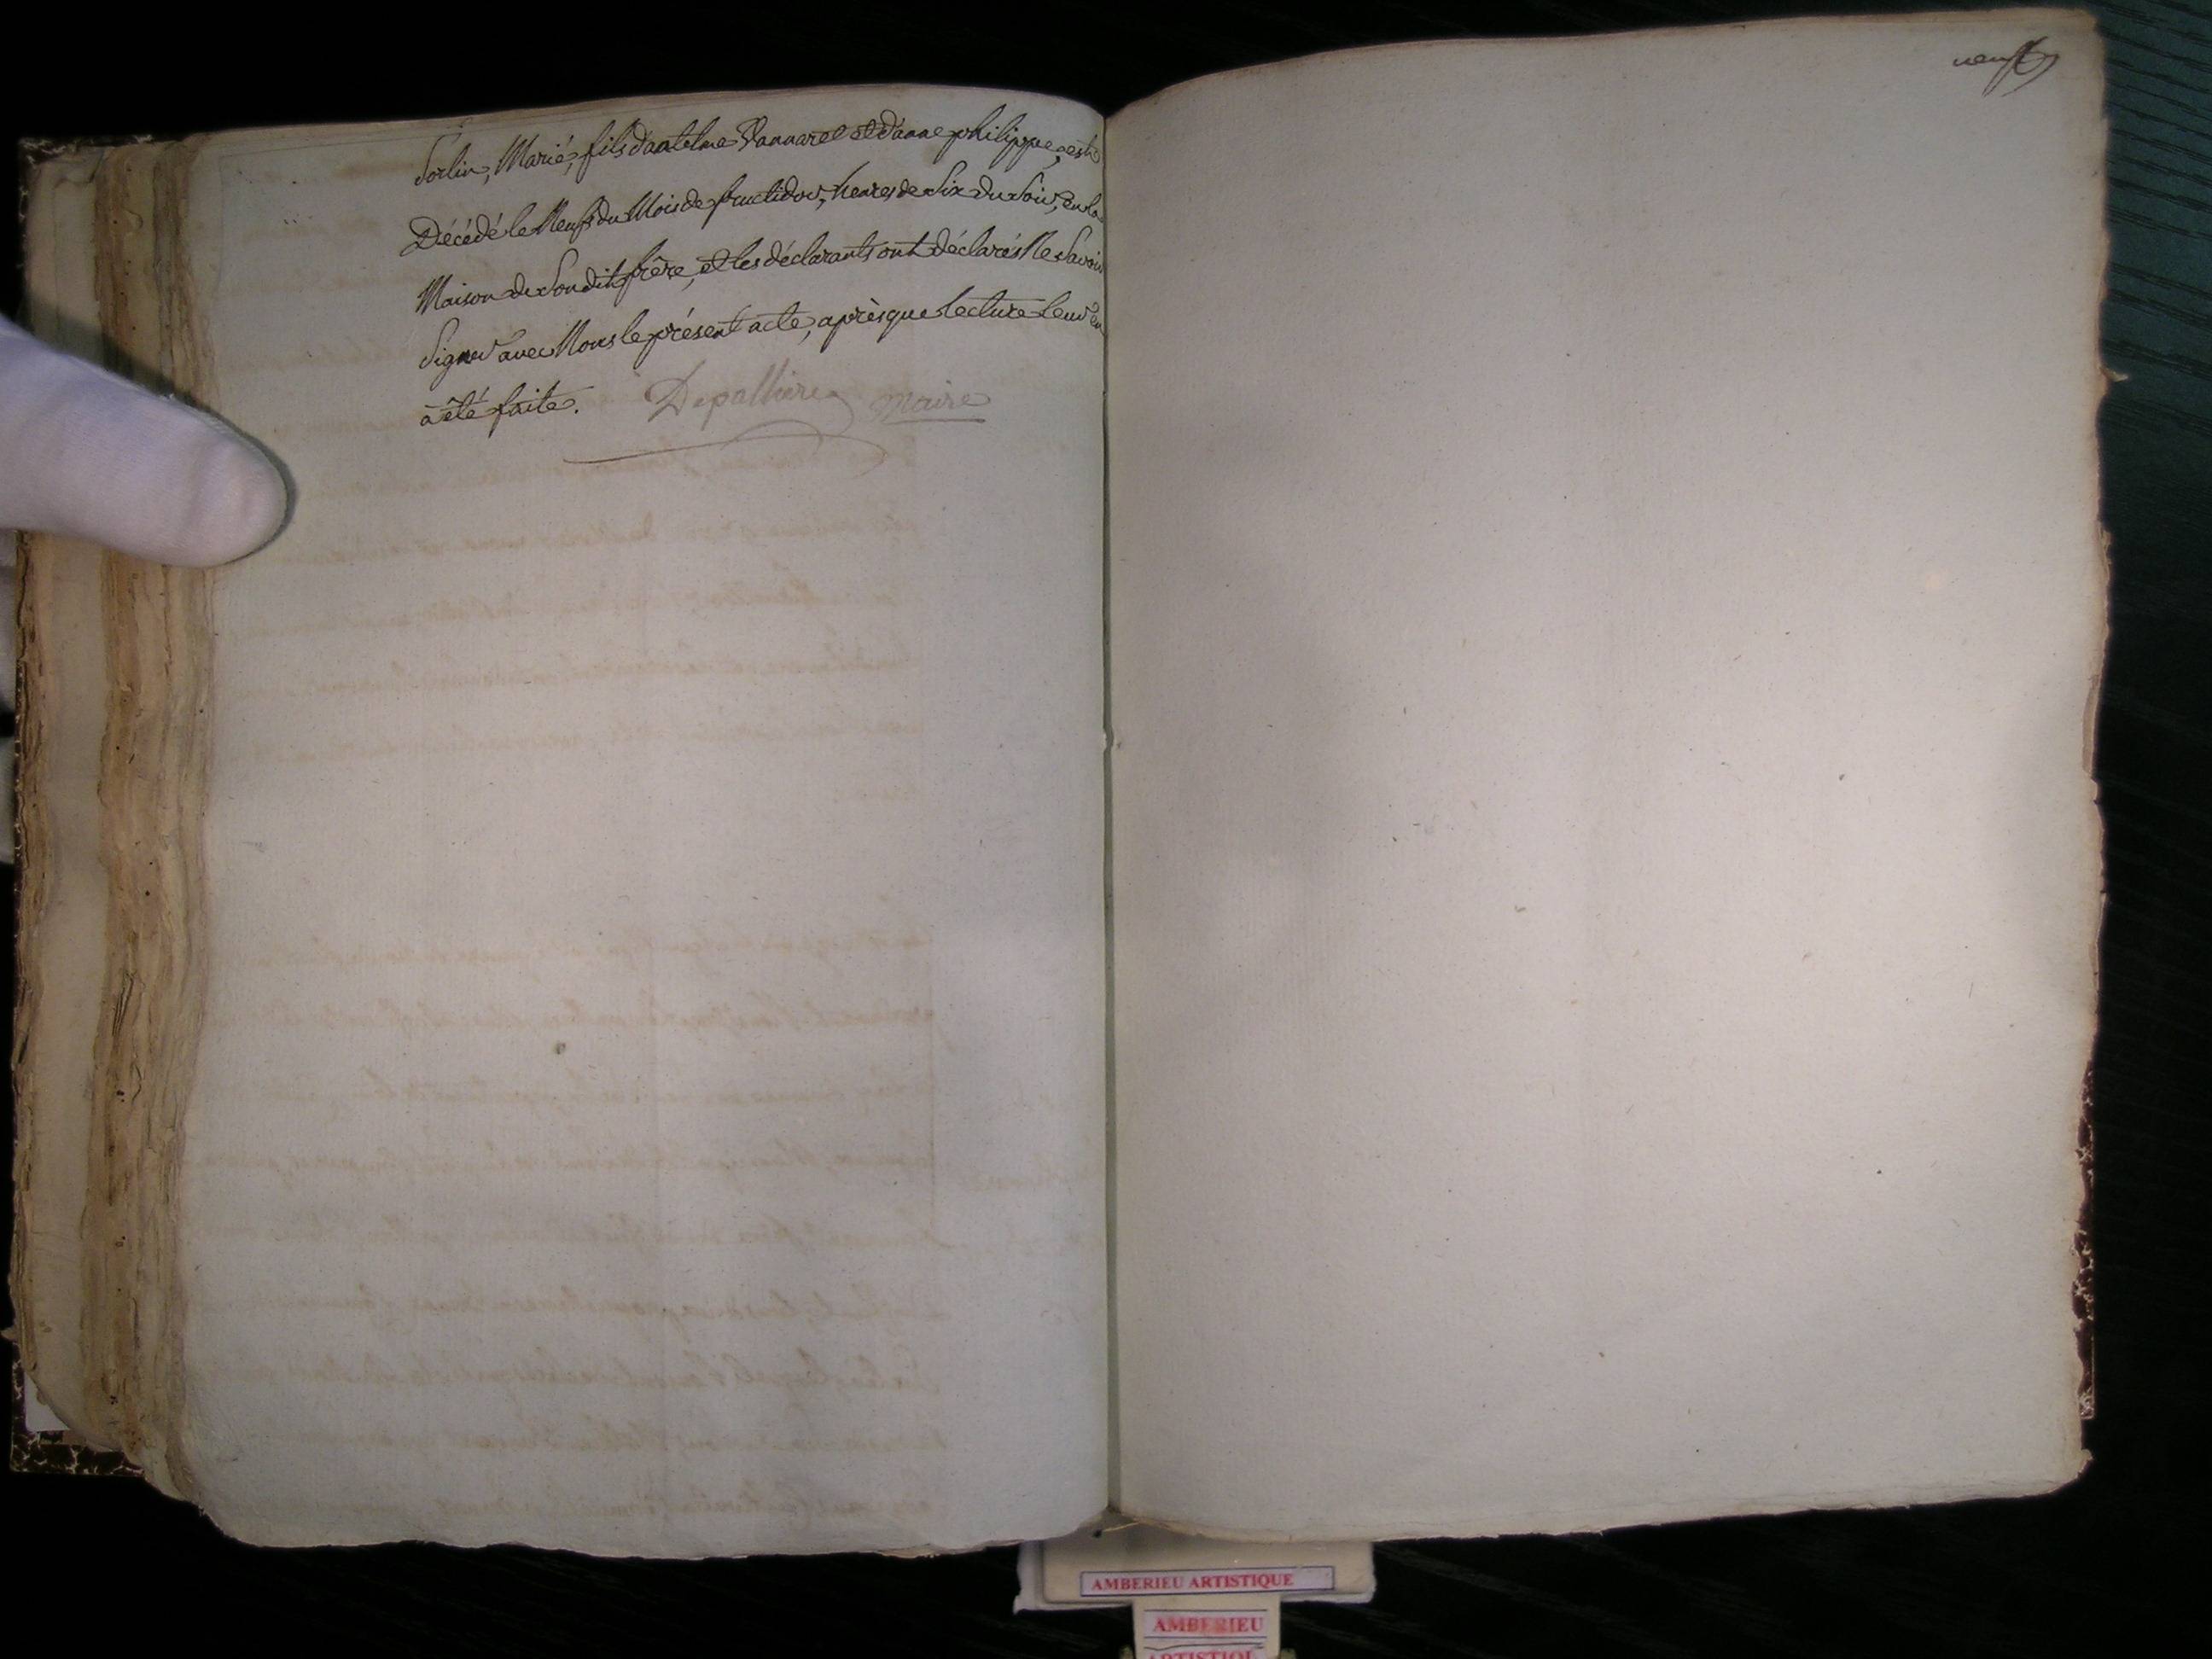 Sorlin, Marié, fils d'antelme Vannarel et d'anne philippe, est
Décédé le Neuf du Mois de fructidor, heures de Six du Soir, en la
Maison de Son dit frère, et les déclarants ont déclarés Ne Savoir
Signer avec Nous le présent acte, après que lecture Leur en
à été faite. Depallière maire
neuf
AMBERIEU ARTISTIQUE
AMBERIEU
ARTISTIQUE